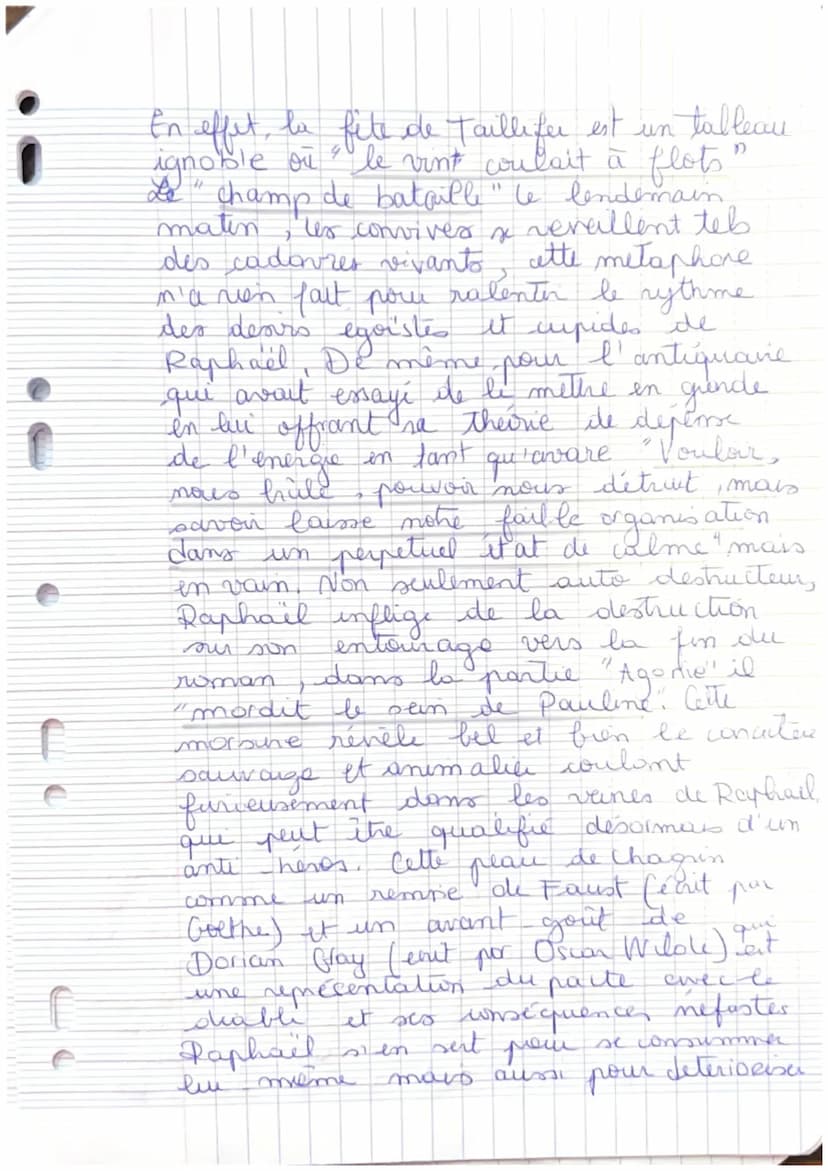 En effet, la fête de Taillefer est un tableau
ignoble où "le vint coulait à flots"
Le "champ de bataille" le lendemain
matin, les convives se reveillent tels
des cadavres vivants, cette metaphore
n'a rien fait pour ralentir le rythme
des desirs egoïstes et cupides de
Raphaël. De même pour l'antiquaire
qui avait essayé de le mettre en garde
en lui offrant sa théorie de dépense
de l'énergie en tant qu'avare "Vouloir,
nous brûle, pouvoir nous détruit, mais
savoir laisse notre faible organisation
dans un perpetuel état de calme" mais
en vain. Non seulement auto destructeur,
Raphaël inflige de la destruction
sur son entourage vers la fin du
roman, dans la partie "Agonie" il
"mordit le sein de Pauline". Cette
morsure révèle bel et bien le caractère
sauvage et animalier coulant
furieusement dans les veines de Raphaël,
qui peut être qualifié désormais d'un
anti-héros. Cette peau de chagrin
comme un remrie de Faust (écrit par
Goethe) et un avant-goût de
Dorian Gray (ecrit par Oscar Wilde) qui est
une représentation du pacte avec le
diable et ses conséquences néfastes
Raphaël s'en sert pour se consummer
lui même mais aussi pour deteriorer